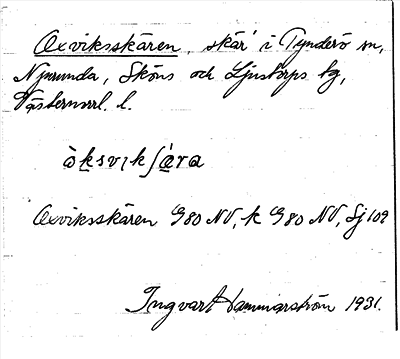 Oxviksskären, skär i Tynderö sn,
Njurunda, Sköns och Ljustorps tg,
Västernorrl. l.
òksvikʃära
Oxviksskären G80 NV, k G80 NV, Sj 109
Ingvart Hammarström 1931.